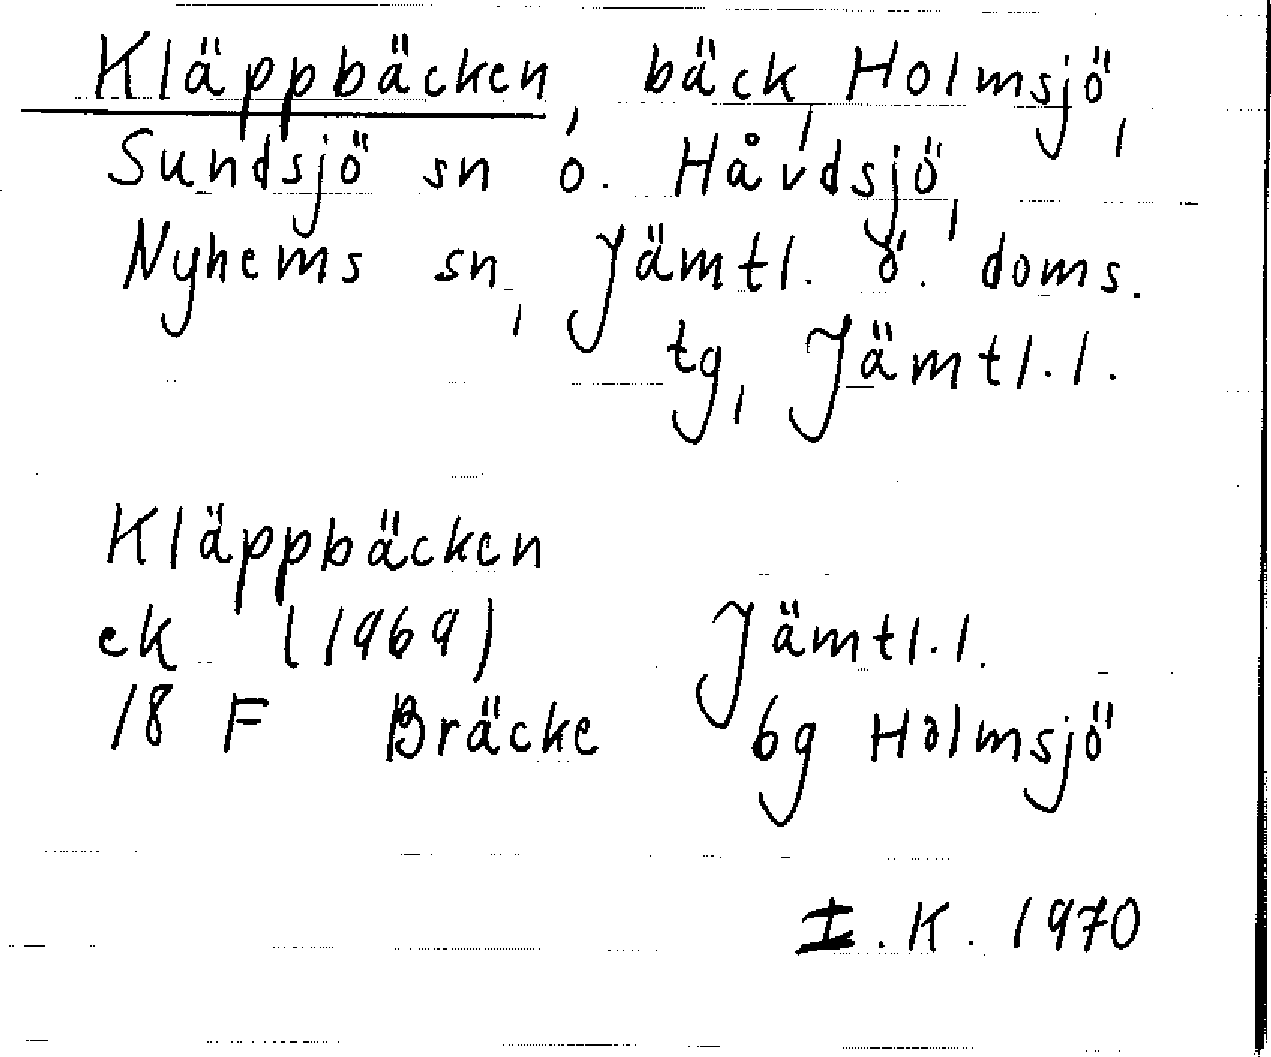 Kläppbäcken, bäck, Holmsjö,
Sundsjö sn o. Håvdsjö,
Nyhems sn, Jämtl. ö. doms.
tg, Jämtl. l.
Kläppbäcken
ek (1969) Jämtl. l.
18 F Bräcke 6g Holmsjö
I. K. 1970